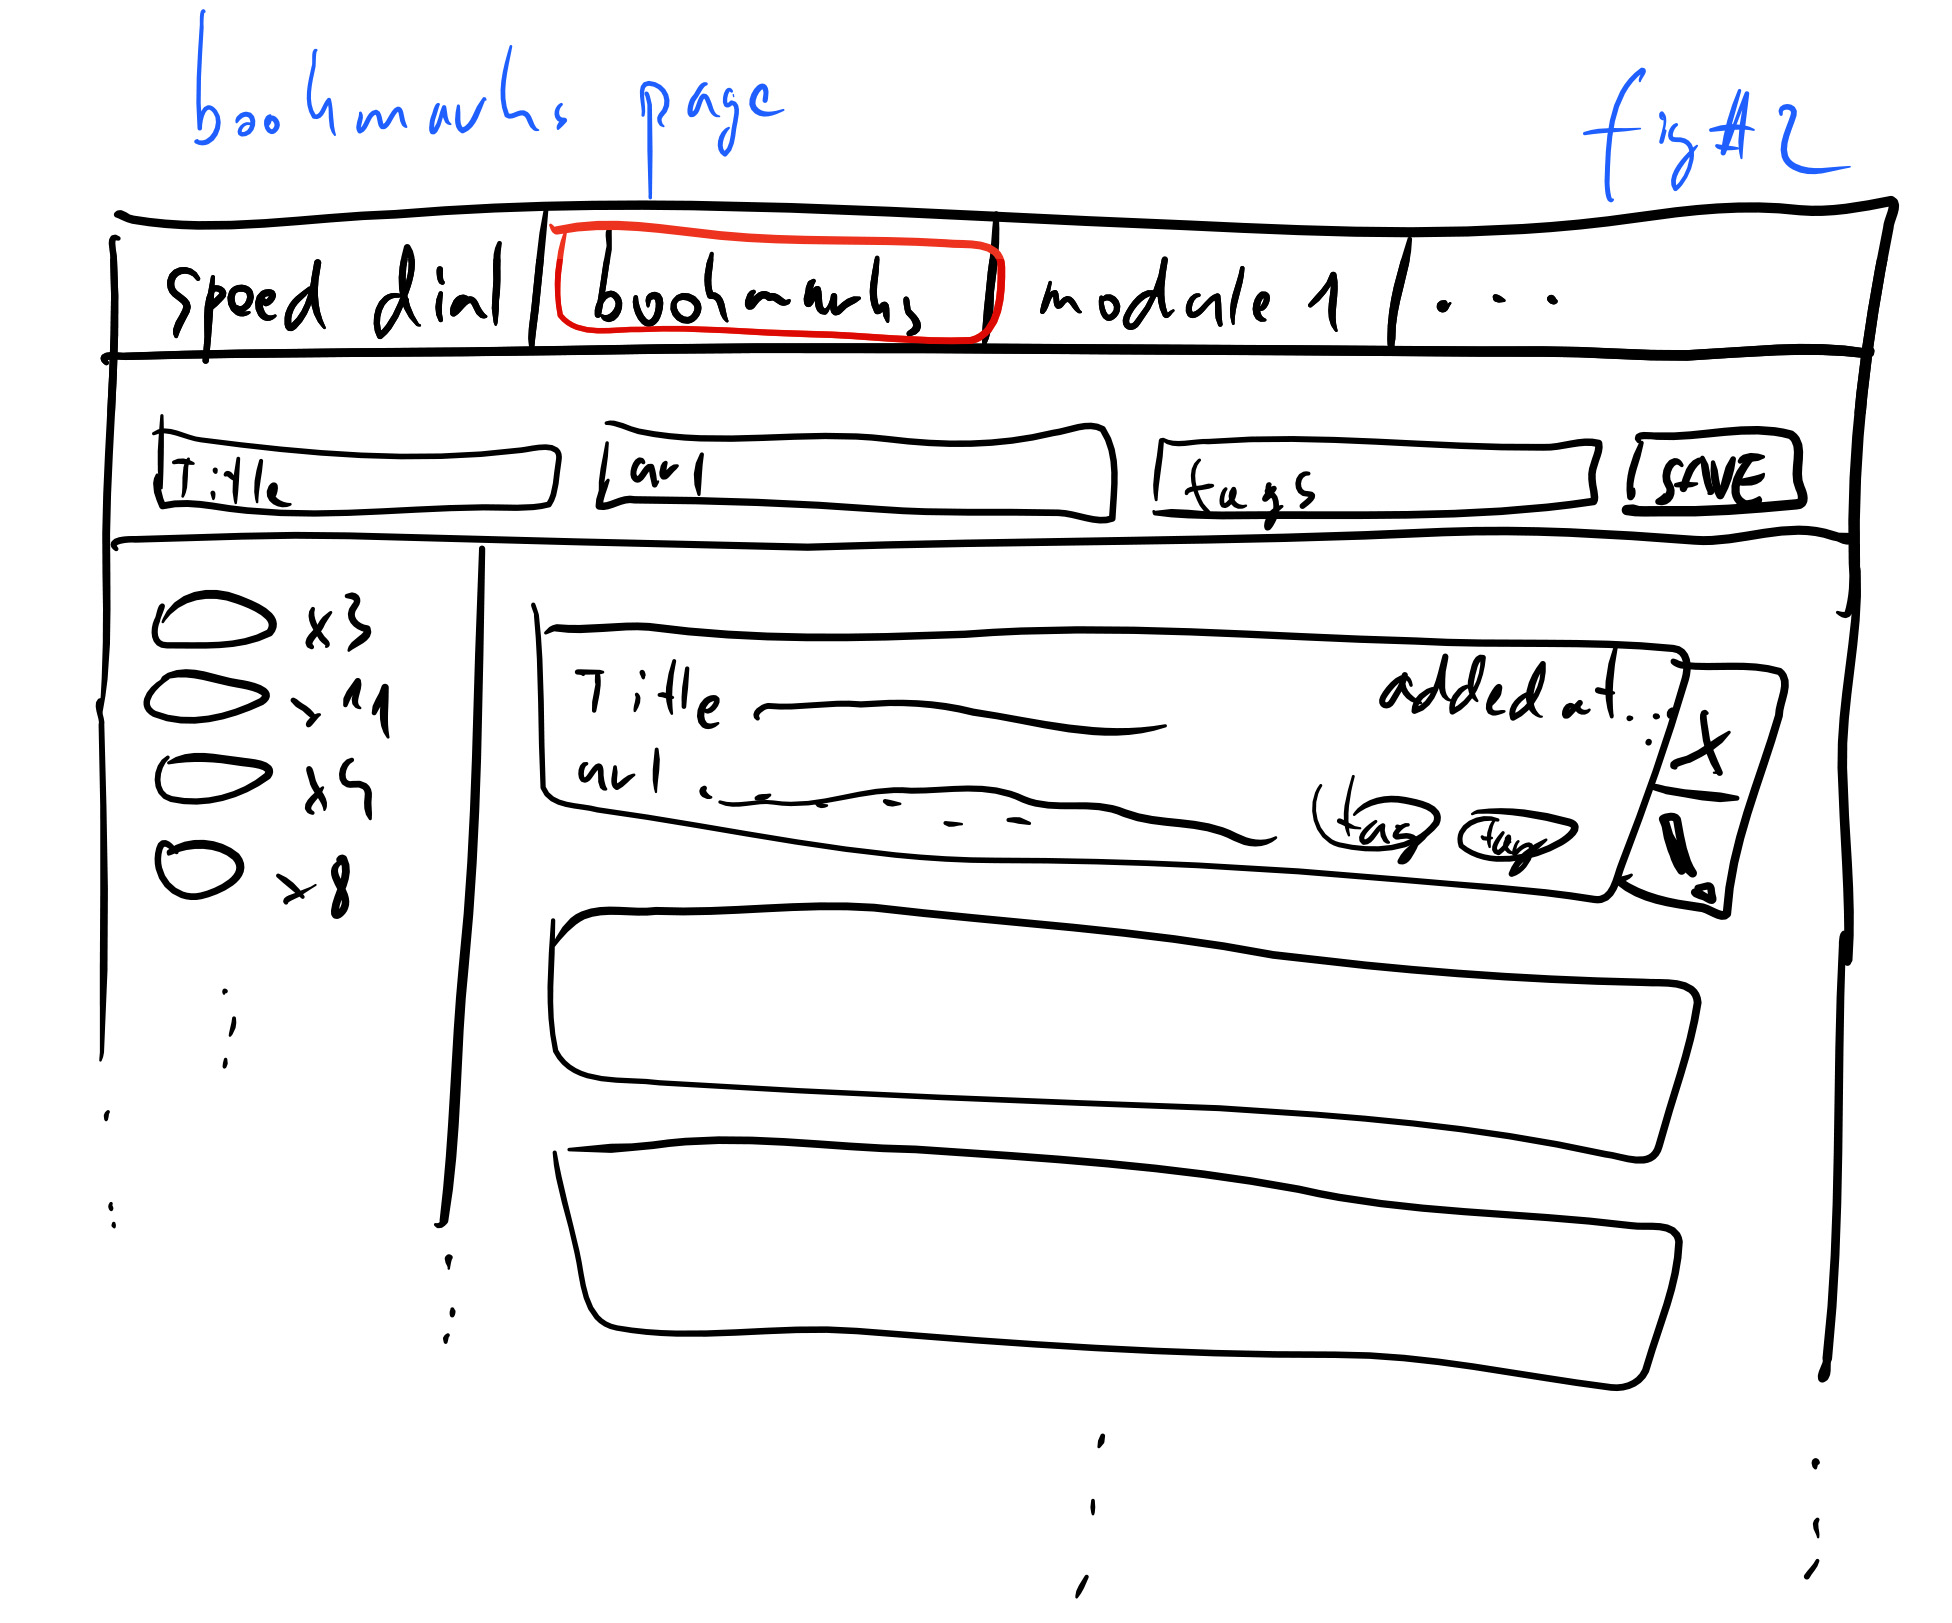 bookmarks page
fig #2
speed dial bookmarks module 1 ...
Title url tags SAVE
x3
x11
x4
x8
Title added at...
url
tag tag
X